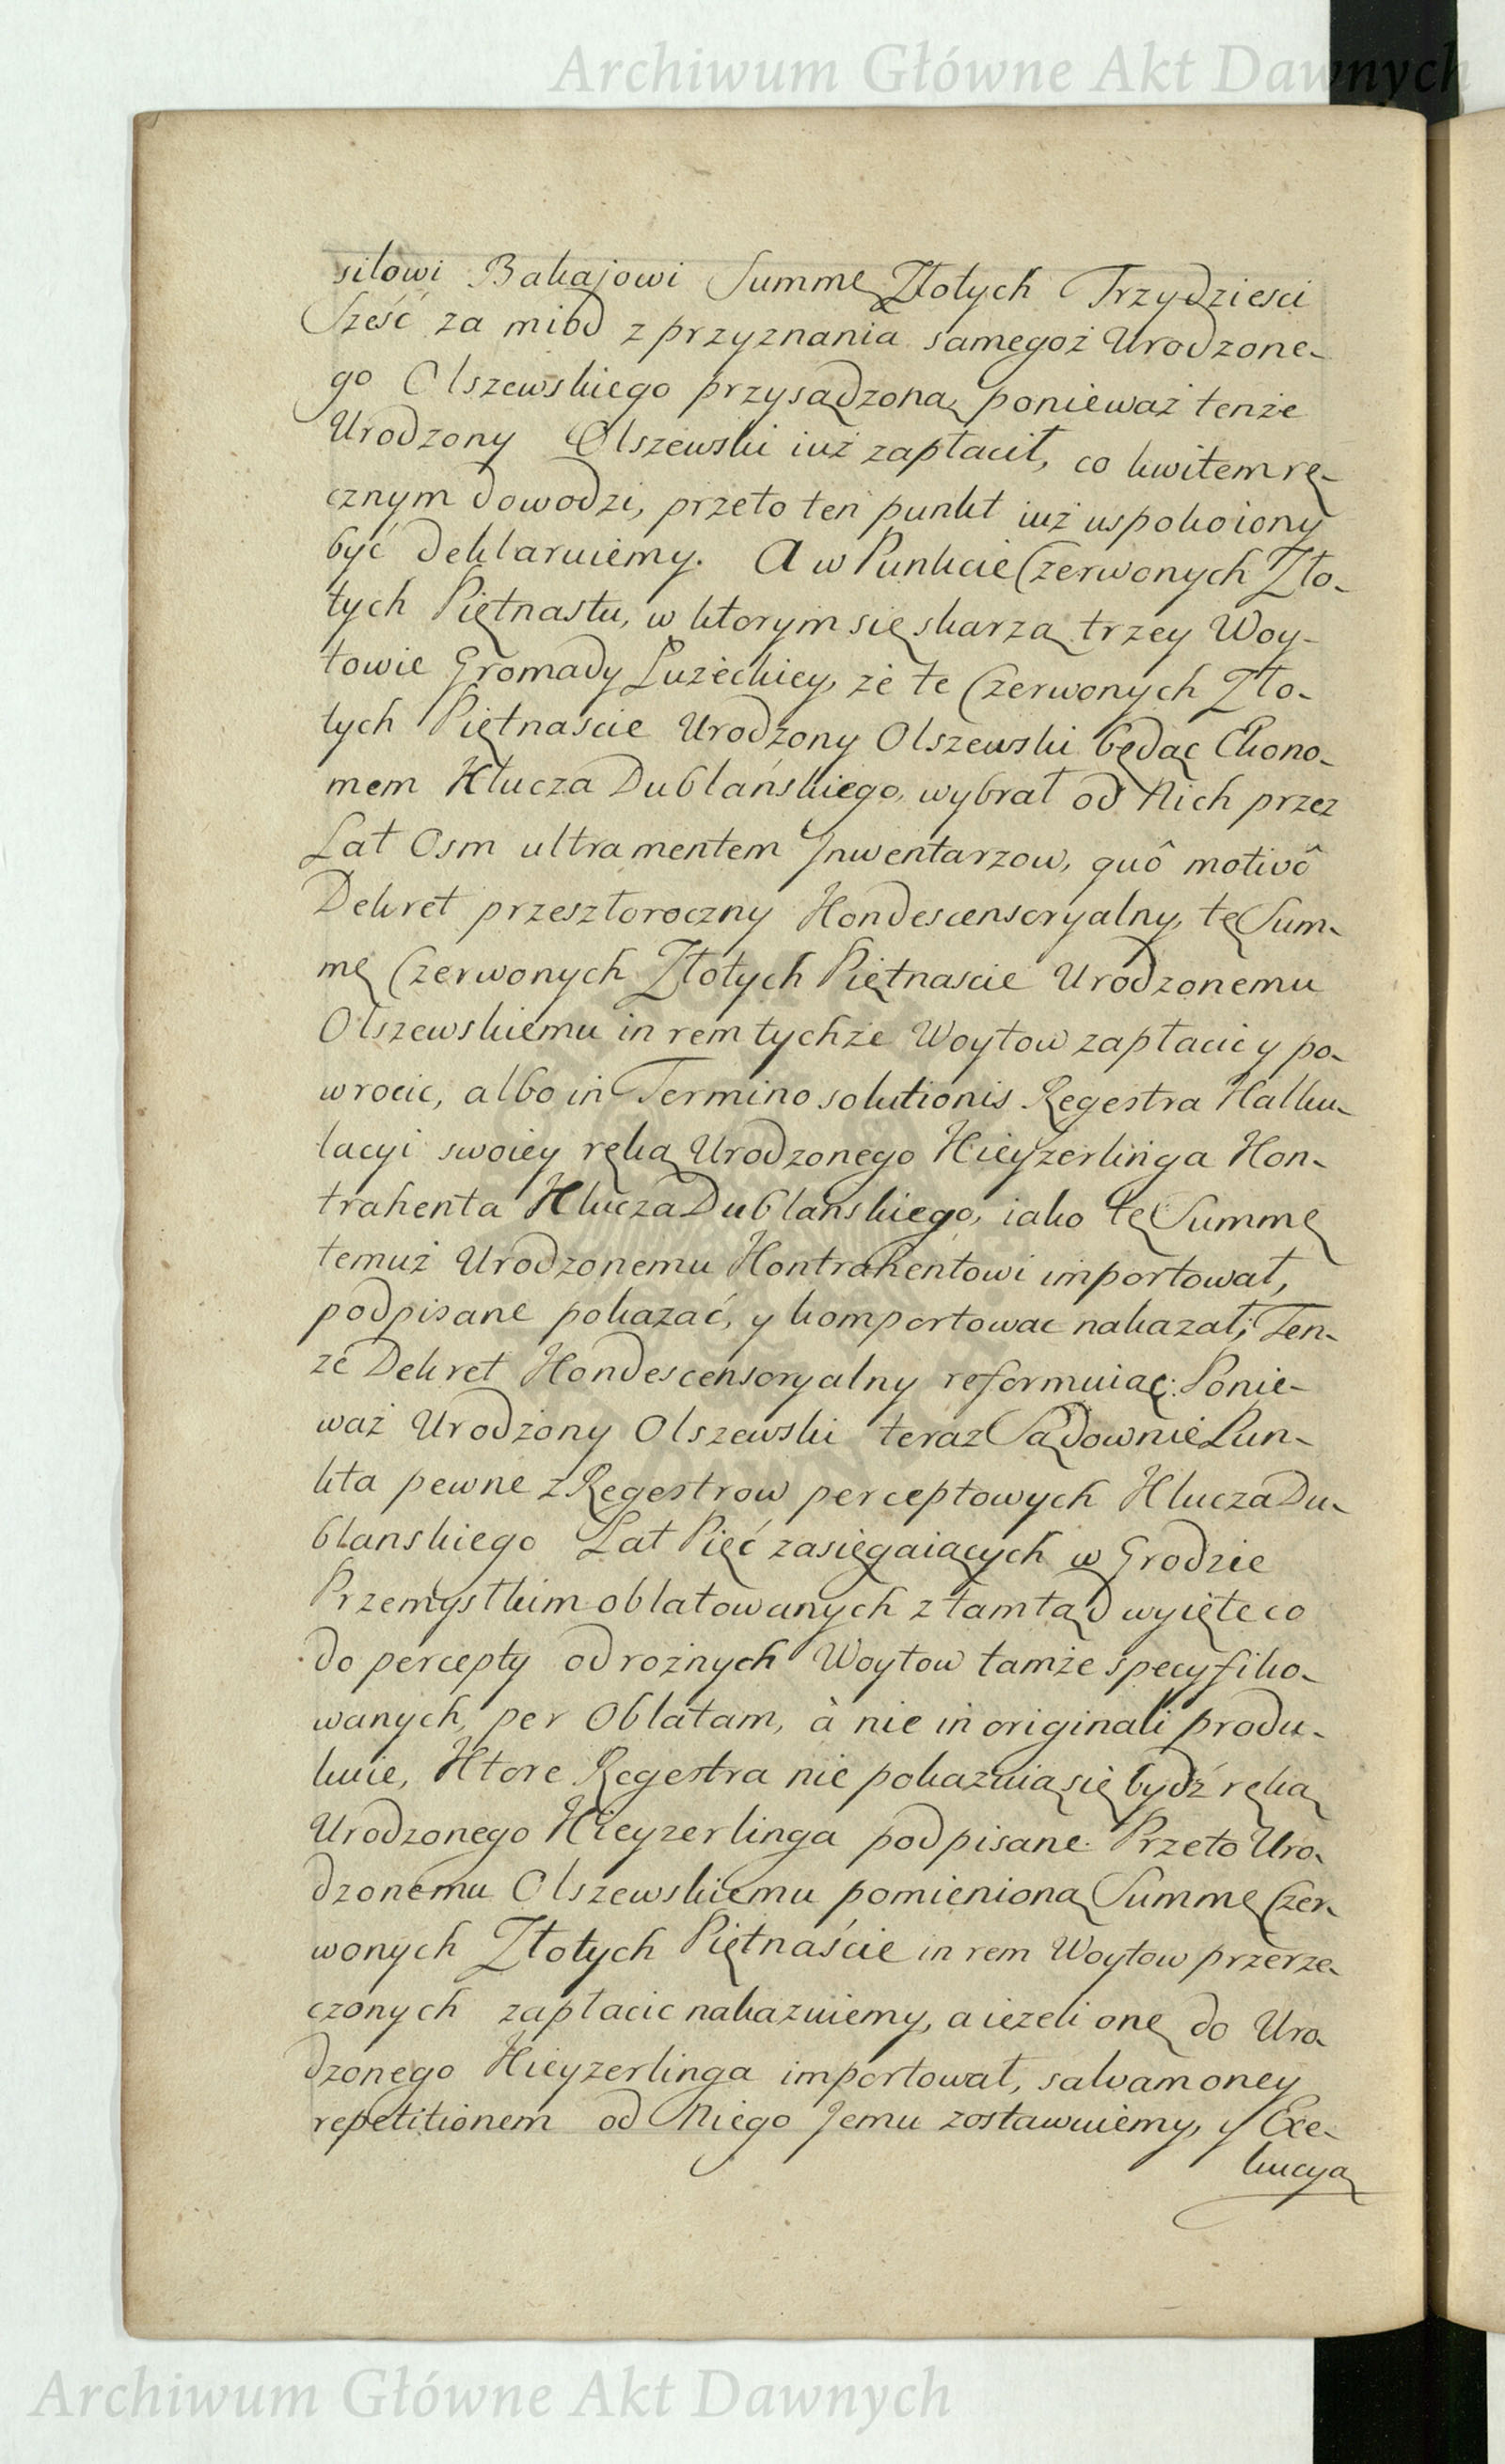 Archiwum Główne Akt Dawnych
siłowi Bakajowi Summę Złotych Trzydziesci
Sześć za miod z przyznania samegoż Urodzone-
go Olszewskiego przysądzoną, ponieważ tenże
Urodzony Olszewski iuż zapłacił, co kwitem rę-
cznym dowodzi, przeto ten punkt iuż uspokoiony
być deklaruiemy. A w Punkcie Czerwonych Zło-
tych Piętnastu, w ktorym się skarzą trzey Woy-
towie Gromady Łużeckiey, że te Czerwonych Zło-
tych Piętnascie Urodzony Olszewski będąc Ekono-
mem Klucza Dublańskiego, wybrał od Nich przez
Lat Osm ultra mentem Jnwentarzow, quô motivô
Dekret przeszłoroczny Kondescensoryalny, tę Sum-
mę Czerwonych Złotych Piętnascie Urodzonemu
Olszewskiemu in rem tychże Woytow zapłacic y po-
wrocic, albo in Termino solutionis Regestra Kalku-
lacyi swoiey ręką Urodzonego Kieyzerlinga Kon-
trahenta Klucza Dublanskiego, iako tę Summę
temuż Urodzonemu Kontrahentowi importował,
podpisane pokazać, y komportowac nakazał; Ten-
że Dekret Kondescensoryalny reformuiąc: Ponie-
waż Urodzony Olszewski teraz Sądownie Pun-
kta pewne z Regestrow perceptowych Klucza Du-
blanskiego Lat Pięć zasięgaiących w Grodzie
Przemyslkim oblatowanych ztamtąd wyięte co
do percepty od rożnych Woytow tamże specyfiko-
wanych, per Oblatam, à nie in originali produ-
kuie, Ktore Regestra nie pokazuią się bydź ręką
Urodzonego Kieyzerlinga podpisane. Przeto Uro-
dzonemu Olszewskiemu pomienioną Summę Czer-
wonych Złotych Piętnaście in rem Woytow przerze-
czonych zapłacic nakazuiemy, a iezeli onę do Uro-
dzonego Kieyzerlinga importował, salvam oney
repetitionem od Niego Jemu zostawuiemy, y Exe-
kucyą
Archiwum Główne Akt Dawnych